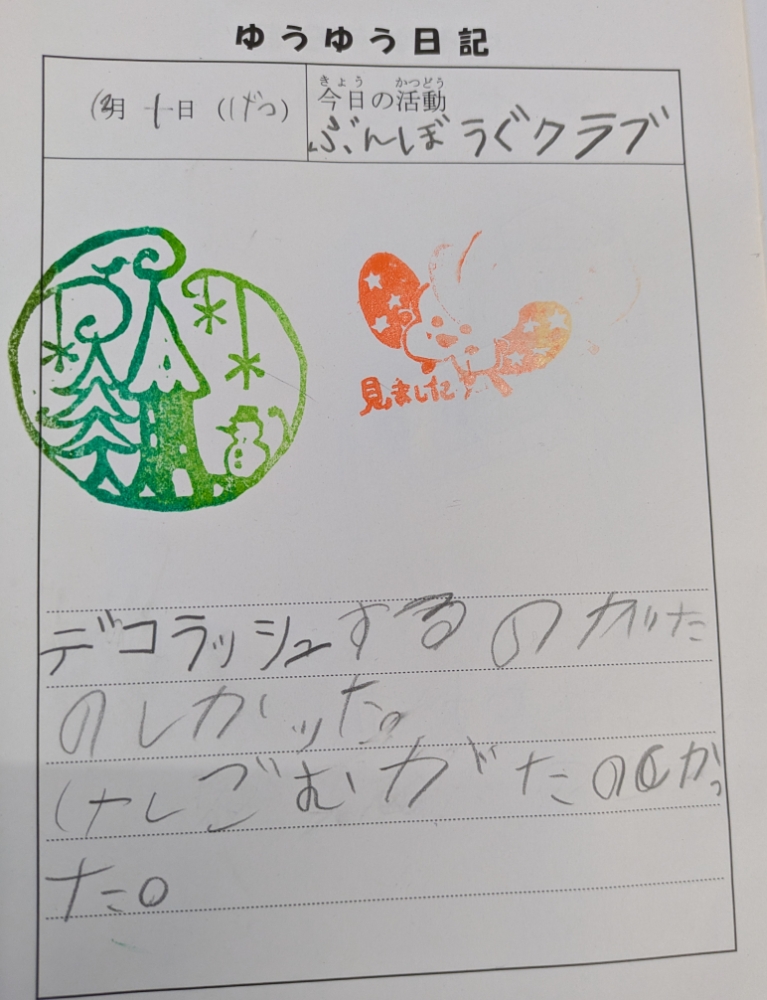 ゆうゆう日記
12月 十日 (げつ)
きょう かつどう
今日の活動
ぶんぼうぐクラブ
見ました
デコラッシュするのがた
のしかッた。
けしごむがたのしかっ
た。